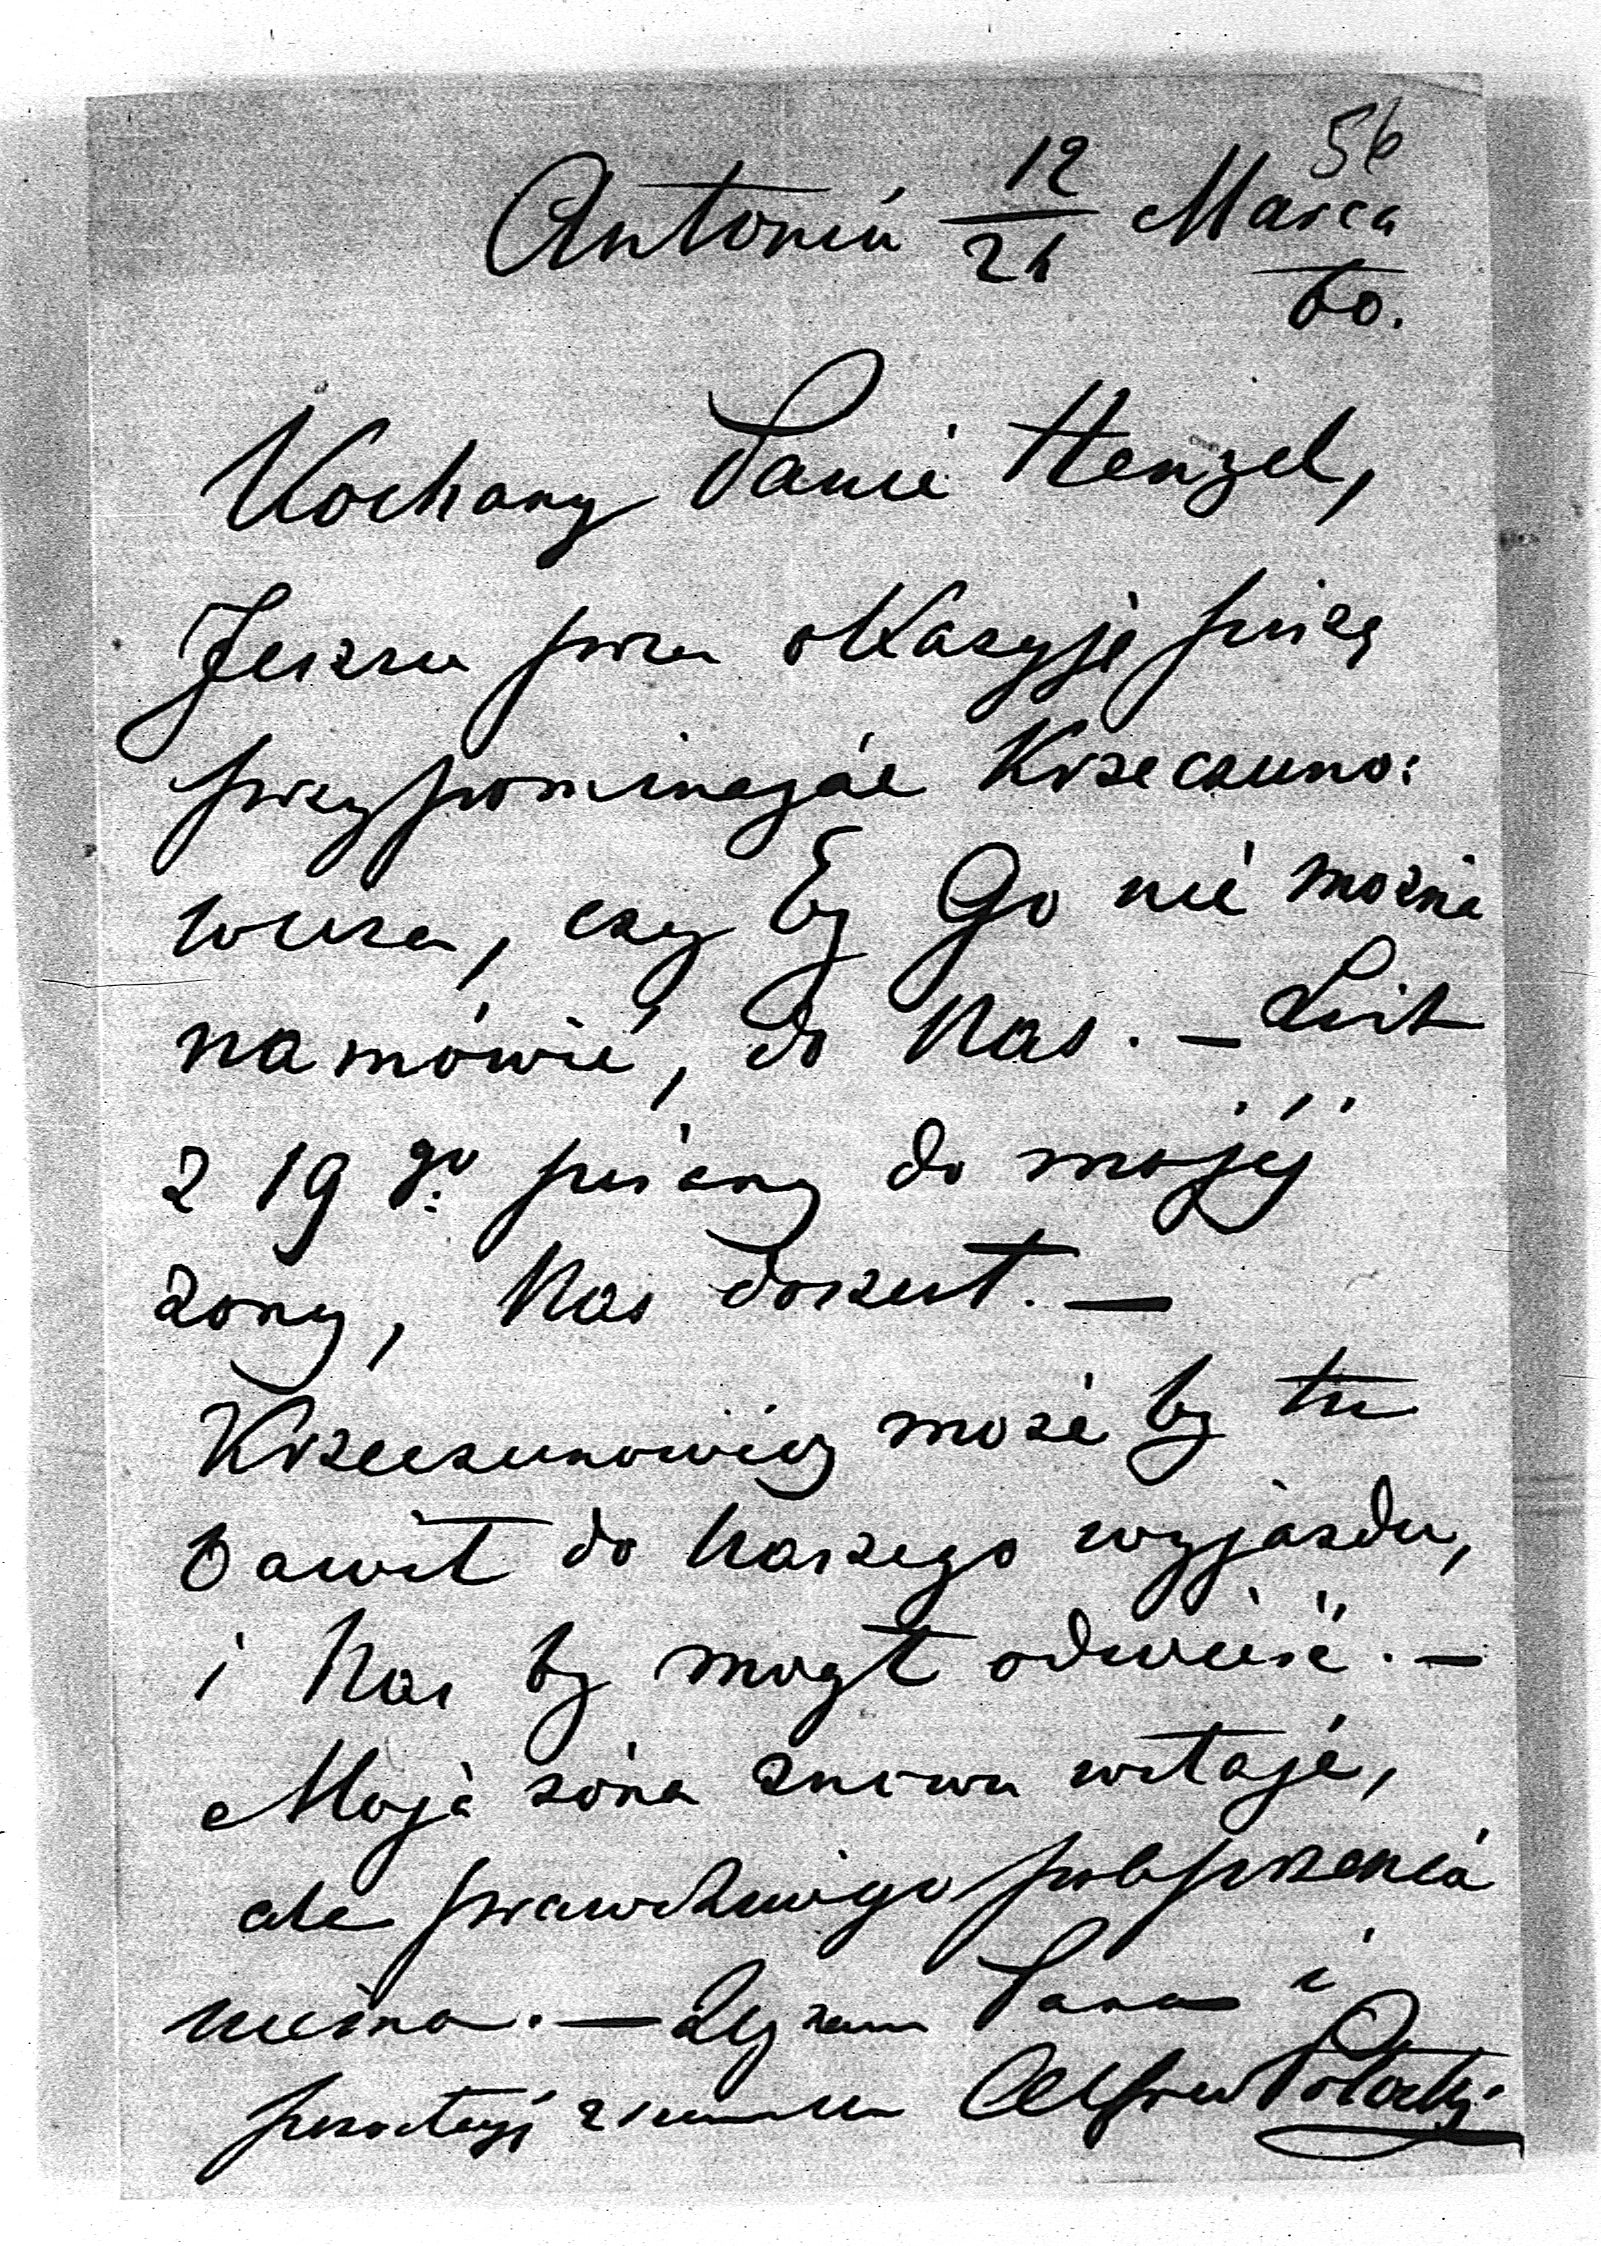 56
Antonin 12/24 Marca
60.
Kochany Panie Henzel,
Jeszcze przez okazyję piszę
przypominając Krzeczuno:
wicza, czy by Go nie można
namówić, do Nas. — List
z 19go pisany do mojéj
żony, Nas doszedł. —
Krzeczunowicz może by tu
bawił do Naszego wyjazdu,
i Nas by mógł odwieść. —
Moja żona znowu wstaje,
ale prawdziwego polepszenia
niema. — Pana i
Alfred Potocki